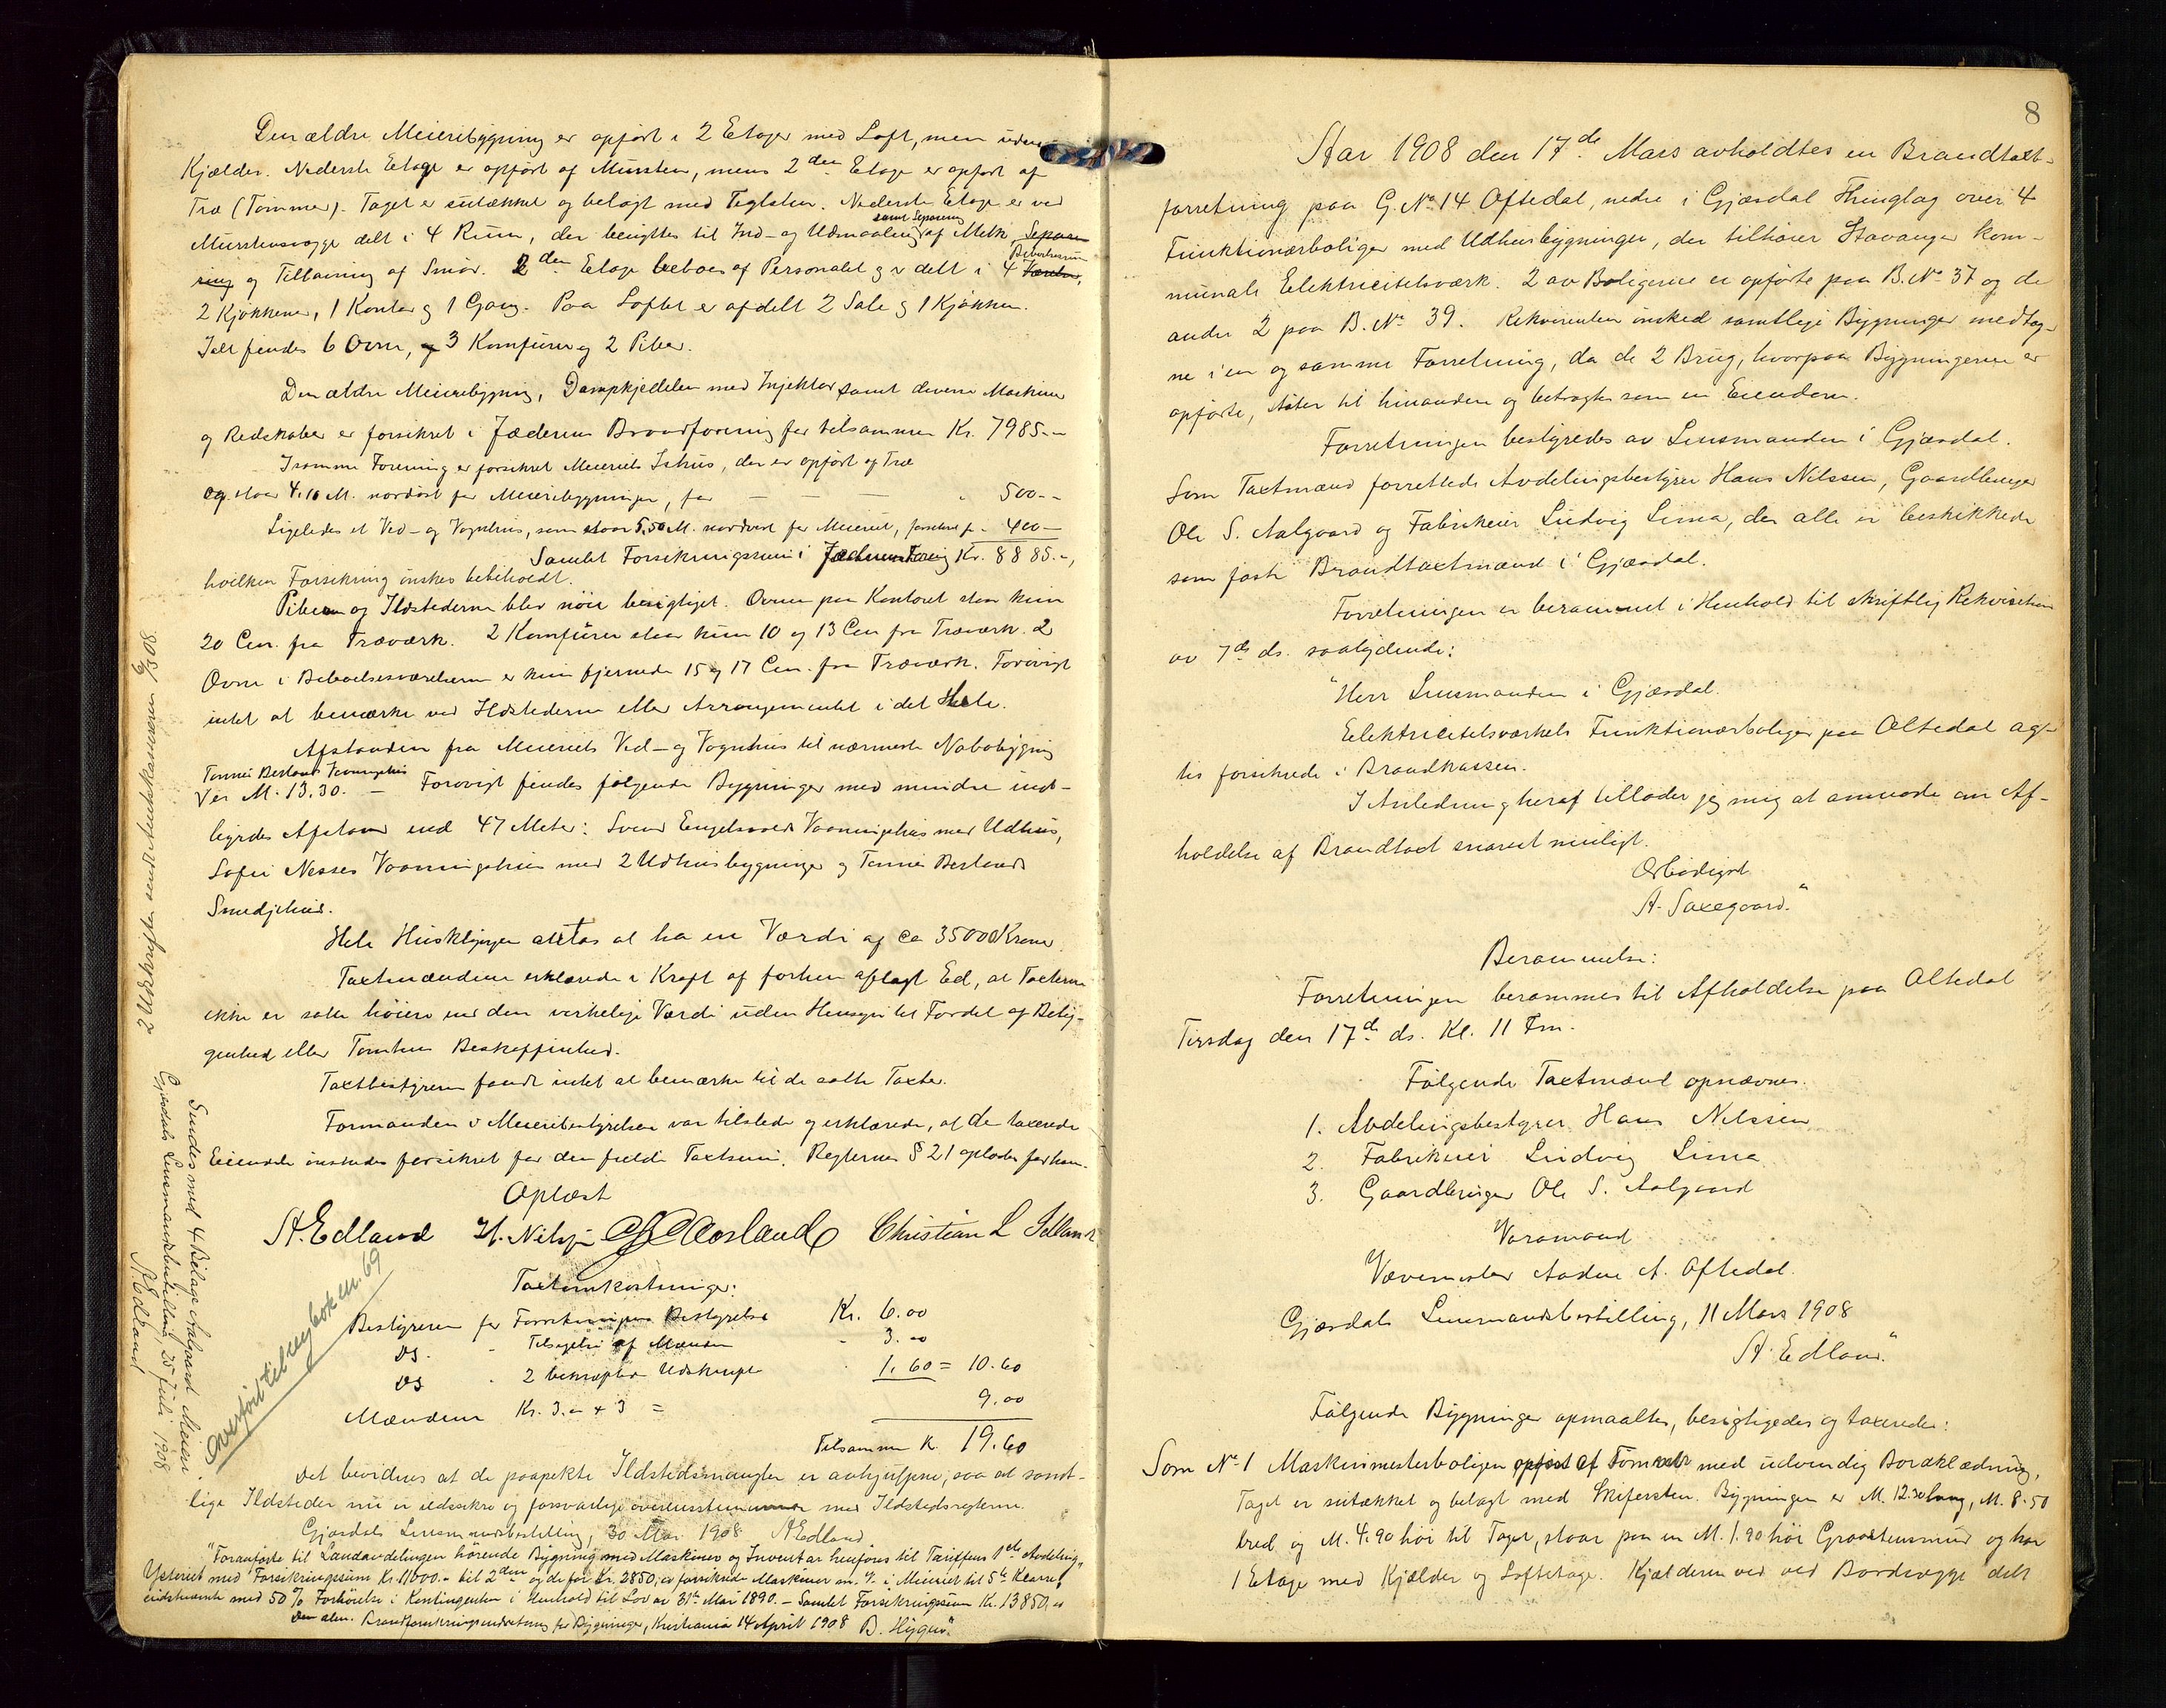 Den ældre Meieribygning er opført i 2 Etager med Loft, men uden
Kjælder. Nederste Etage er opført af Mursten, mens 2den Etage er opført af
Træ (Tømmer). Taget er sutækket og belagt med Teglsten. Nederste Etage er ved
Murstensvægge delt i 4 Rum, der benyttes til Ind- og Udmaaling samt Separering af Melk Separe-
ring og Tillavning af Smør. 2den Etage beboes af Personalet og er delt i 4 Beboelsesrum Værelser,
2 Kjøkkener, 1 Kontor og 1 Gang. Paa Loftet er afdelt 2 Sale og 1 Kjøkken.
Ialt findes 6 Ovne, og 3 Komfurer og 2 Piber.
Den ældre Meieribygning, Dampkjedelen med Injektor samt diverse Maskiner
og Redskaber er forsikret i Jæderens Brandforening for tilsammen Kr. 7985.-
I samme Forening er forsikret Meieriets Ishus, der er opført af Træ
og staar 4.10 M. nordøst for Meieribygningen, for — — — " 500.-
Ligeledes et Ved- og Vognhus, som staar 5.50 M. nordvest for Meieriet, forsikret f. - 400 —
Samlet Forsikringssum i Jæderens Foreing Kr. 8885.-,
hvilken Forsikring ønskes bibeholdt.
Piberne og Ildstederne blev nøie besigtiget. Ovnen paa Kontoret staar kun
20 Cm. fra Træværk. 2 Komfurer staar kun 10 og 13 Cm fra Træværk. 2
Ovne i Beboelsesværelserne er kun fjernede 15 og 17 Cm. fra Træværk. Forøvrigt
intet at bemærke ved Ildstederne eller Arrangementet i det Hele.
Afstanden fra Meieriets Ved- og Vognhus til nærmeste Nabobygning
Tønnes Berlands Vaaningshus
er M. 13.30. — Forøvrigt findes følgende Bygninger med mindre ind-
byrdes Afstand end 47 Meter: Svend Engelsvolds Vaaningshus med Udhus,
Sofie Nesses Vaaningshus med 2 Udhusbygninger og Tønnes Berlands
Smedjehus.
Hele Huskklyngen antas at ha en Værdi af ca 35000 Kroner.
Taxtmændene erklærede i Kraft af forhen aflagt Ed, at Taxterne
ikke er satte høiere end den virkelige Værdi uden Hensyn til Fordel af Belig-
genhed eller Tomtens Beskaffenhed.
Taxtbestyreren fandt intet at bemærke til de satte Taxter.
Formanden i Meieribestyrelsen var tilstede og erklærede, at de taxerede
Eiendele ønskedes forsikret for den fulde Taxtsum. Reglernes § 21 oplæstes for ham.
Oplæst
A. Edland H. Nilssen Christian L
Taxtomkostninger:
Bestyreren for Forretningens Bestyrelse Kr. 6.00
Ds. - Tilsigelse af Mænden - 3.00
Ds - 2 bekræftede Udskrifter - 1.60 = 10.60
Mændene Kr. 3.- x 3 = 9.00
Tilsammen K. 19.60
Det bevidnes at de paapekte Ildstedsmangler er avhjulpne, saa at samt-
lige Ildsteder nu er ildssikre og forsvarlige overensstemmende med Ildstedsreglerne.
Gjæsdals Lensmandsbestilling, 30 Mai 1908 AEdland
"Foranførte til Landavdelingen hørende Bygning med Maskiner og Inventar henføres til Tariffens 1ste Avdeling,
Ysteriet med Forsikringssum Kr. 11000.- til 2den og de for Kr. 2850,- forsikrede Maskiner m. v. i Meieriet til 5te Klasse,
sidstnævnte med 50% Forhøielse i Kontingenten i Henhold til Lov av 31te Mai 1890. — Samlet Forsikringssum Kr. 13850,-
Den alm. Brandforsikringsindretning for Bygninger, Kristiania 14 April 1908 B. Hygen."
2 Udskrifter sendt Amtskassereren 6/3 08.
Sendes med 4 Bilage Aalgaard Meieri.
Gjæsdals Lensmandsbestilling, 25 Juli 1908
AEdland
Overført til reg bok nr. 69
8
Aar 1908 den 17de Mars avholdtes en Brandtaxt-
forretning paa G. No 14 Oftedal, nedre i Gjæsdal Thinglag over 4
Funktionærboliger med Udhusbygninger, der tilhører Stavanger kom-
munale Elektricitetsværk. 2 av Boligerne er opførte paa B. No 37 og de
andre 2 paa B. No 39. Rekvirenten ønsked samtlige Bygninger medtag-
ne i en og samme Forretning, da de 2 Brug, hvorpaa Bygningerne er
opførte, støter til hinanden og betragtes som en Eiendom.
Forretningen bestyredes av Lensmanden i Gjæsdal.
Som Taxtmænd forrettede Avdelingsbestyrer Hans Nilssen, Gaardbruger
Ole S. Aalgaard og Fabrikeier Ludvig Lima, der alle er beskikkede
som faste Brandtaxtmænd i Gjæsdal.
Forretningen er berammet i Henhold til skriftlig Rekvisition
av 7de ds. saalydende:
"Herr Lensmanden i Gjæsdal.
Elektricitetsværkets Funktionærboliger paa Oltedal ag-
tes forsikrede i Brandkassen.
I Anledning heraf tillader jeg mig at anmode om Af-
holdelse af Brandtaxt snarest muligt.
Ærbødigst
A. Saxegaard."
Berammelse:
Forretningen berammes til Afholdelse paa Oltedal
Tirsdag den 17de ds. Kl. 11 Fm.
Følgende Taxtmænd opnævnes:
1. Avdelingsbestyrer Hans Nilssen
2. Fabrikeier Ludvig Lima
3. Gaardbruger Ole S. Aalgaard
Varamand
Vævemester Aadne A. Oftedal.
Gjæsdals Lensmandsbestilling, 11 Mars 1908
A. Edland."
Følgende Bygninger opmaaltes, besigtigedes og taxeredes:
Som No 1 Maskinmesterboligen opført af Tømmer med udvendig Bordklædning,
Taget er sutækket og belagt med Skifersten. Bygningen er M. 12.50 lang, M. 8.50
bred og M. 4.90 høi til Taget, staar paa en M. 1.90 høi Graastensmur og har
1 Etage med Kjælder og Loftetage. Kjælderen ved ved Bordvægge delt